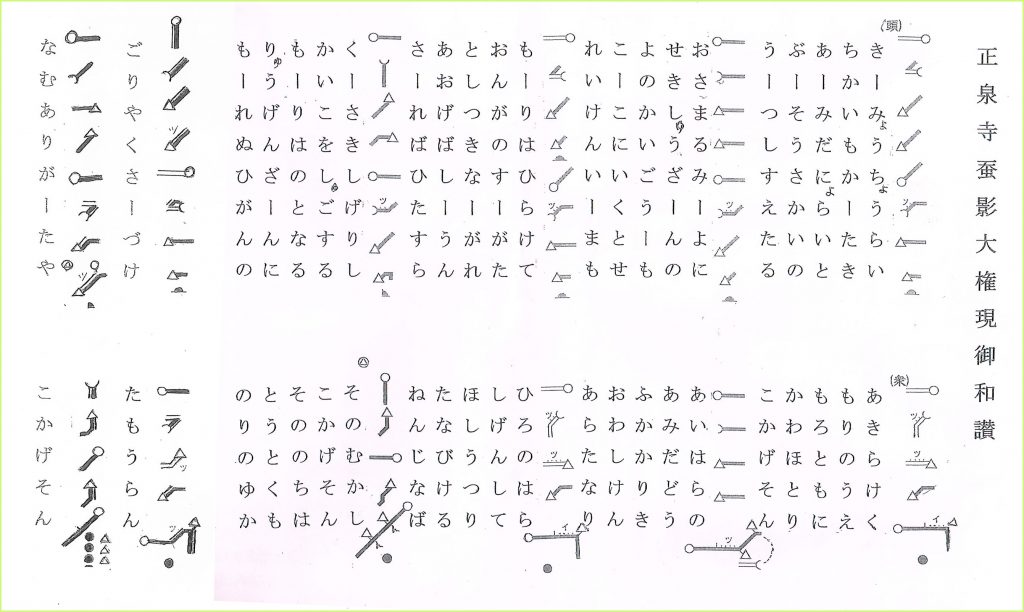 正泉寺蚕影大権現御和讃
(頭)
きーみょうちょうらい
ちかいもかーたき
あーみだにょらいと
ぶーそうさかいの
うーつしすえたる
おさまるみーよに
せきしゅうざーんの
よのかいごうーも
こーこにいくとせ
れいけんいーまも
もーりはひらけて
おんがのすーがた
としつきなーがれ
あおげばしーうん
さーればひたすら
くーさきしげりし
かいこをしょごする
もーりはのとなる
りゅうげんざーんに
もーれぬひがんの
ごりやくさーづけ
なむありがーたや
(衆)
あきらけく
もりのうえ
もろともに
かわほとり
こかげそん
あいはらの
あみだどう
ふかかりき
おわしけん
あらたなり
ひろのはら
しげんして
ほしうつり
たなびける
ねんじなば
そのむかし
こかげそん
そののちは
とうとくも
のりのゆか
たもうらん
こかげそん